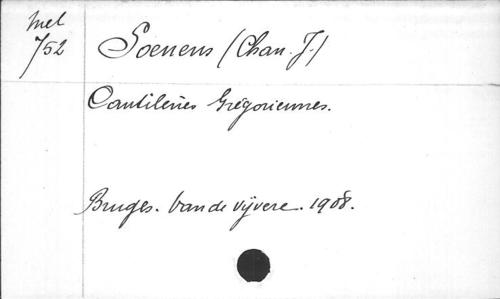 Mel
752
Soenens (Chan. J.)
Cantilènes Grégoriennes.
Bruges. Van de Vijvere. 1908.